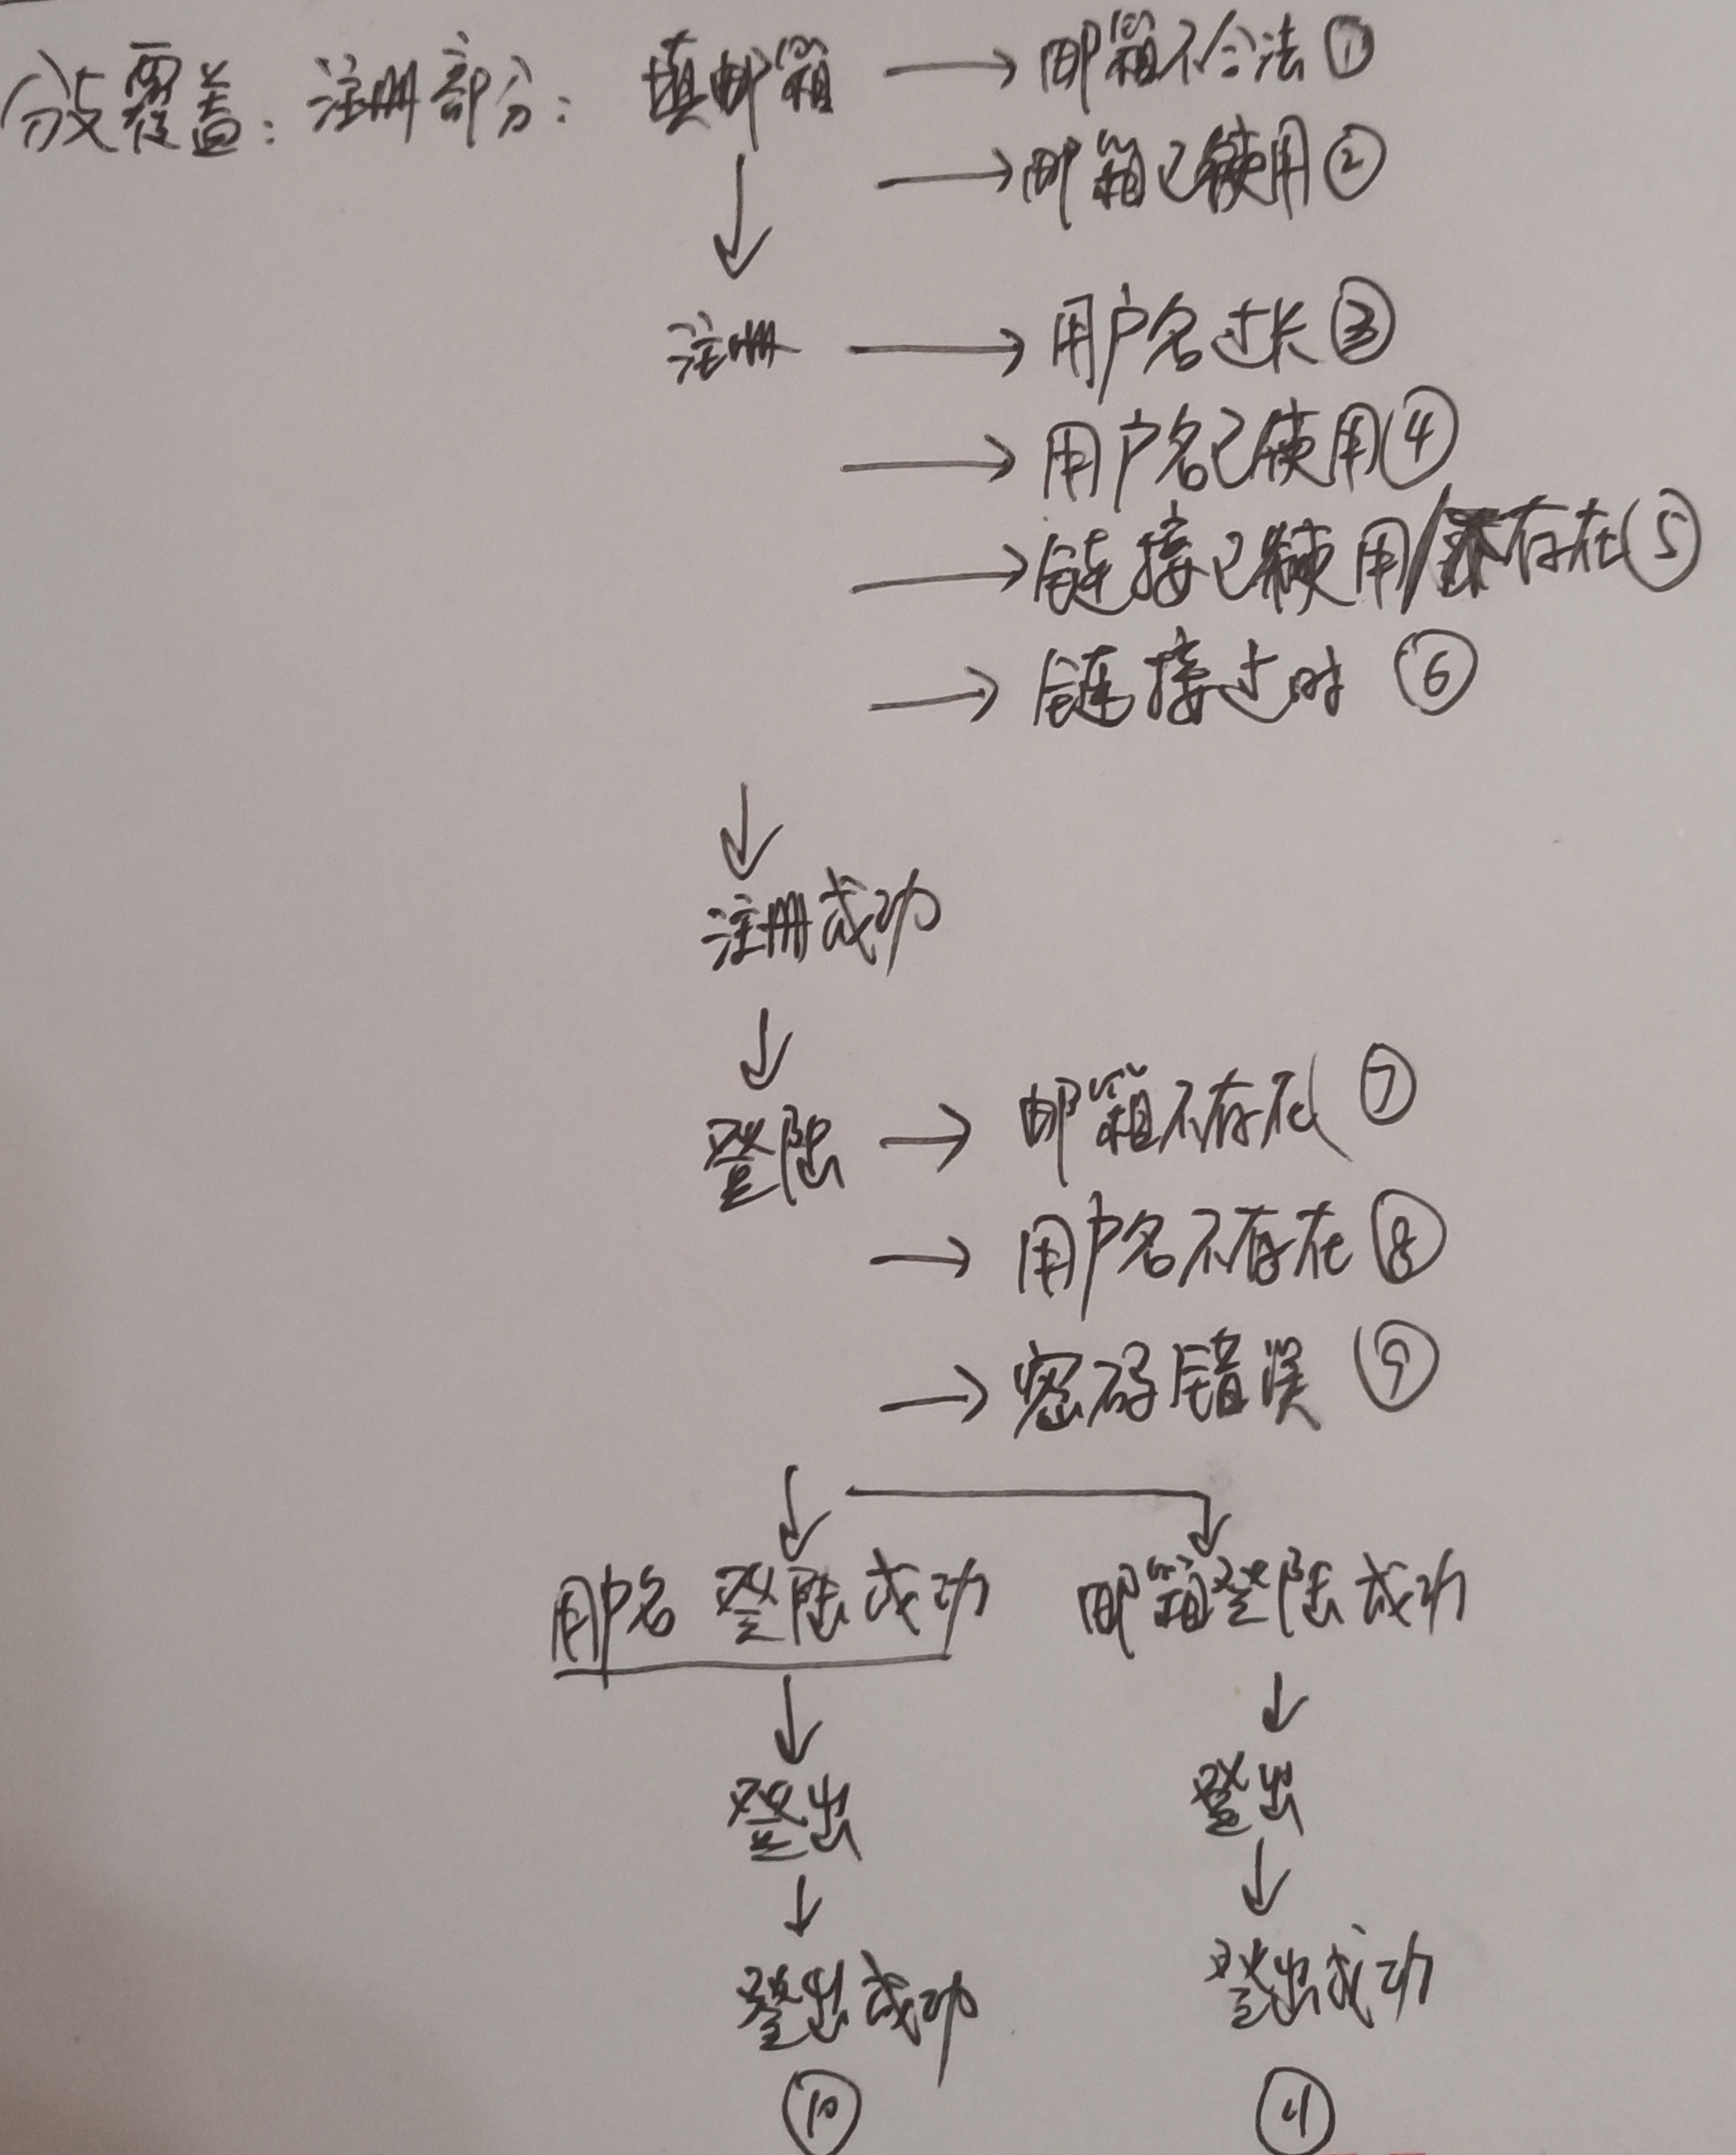 分支覆盖：注册部分：填邮箱 → 邮箱不合法 ①
→ 邮箱已使用 ②
↓
注册 → 用户名过长 ③
→ 用户名已使用 ④
→ 链接已使用/不存在 ⑤
→ 链接过时 ⑥
↓
注册成功
↓
登陆 → 邮箱不存在 ⑦
→ 用户名不存在 ⑧
→ 密码错误 ⑨
↓ ↓
用户名 登陆成功 邮箱登陆成功
↓ ↓
登出 登出
↓ ↓
登出成功 登出成功
⑩ ⑪